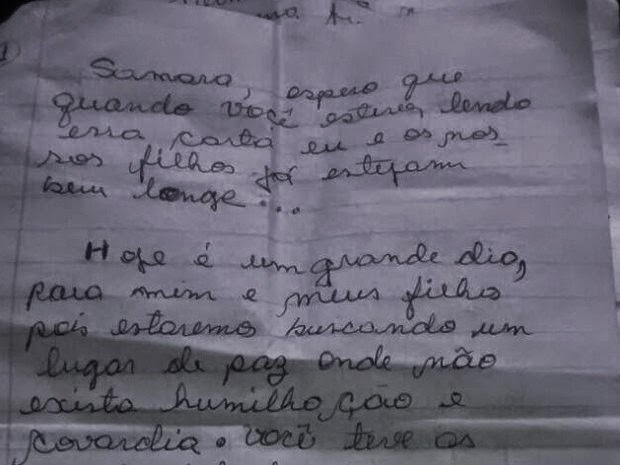 Samara, espero que
quando você estiver lendo
essa carta eu e os nos_
sos filhos já estejam
bem longe...
Hoje é um grande dia,
para mim e meus filho
pois estaremo buscando um
lugar de paz onde não
exista humilhação e
covardia. você teve os